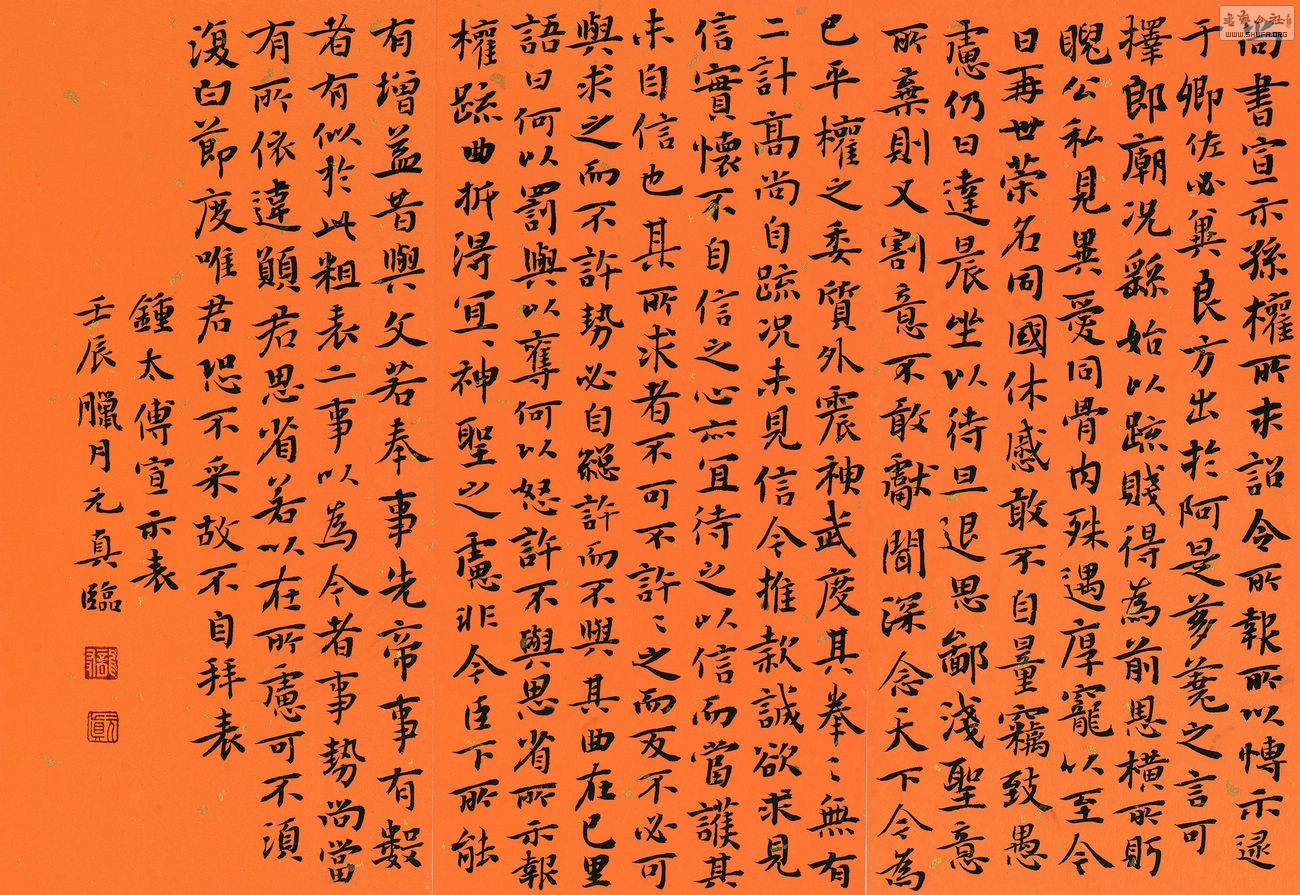 尚書宣示孫權所求詔令所報所以博示逯
于卿佐必冀良方出於阿是芻蕘之言可
擇郎廟况繇始以疏賤得為前恩橫所盻
睨公私見異愛同骨肉殊遇厚寵以至今
日再世榮名同國休慼敢不自量竊致愚
慮仍日達晨坐以待旦退思鄙淺聖意
所棄則又割意不敢獻聞深念天下今為
已平權之委質外震神武度其拳〻無有
二計高尚自疏况未見信今推款誠欲求見
信實懷不自信之心亦宜待之以信而當護其
未自信也其所求者不可不許〻之而反不必可
與求之而不許勢必自絕許而不與其曲在己里
語曰何以罰與以奪何以怒許不與思省所示報
權疏曲折得宜〻神聖之慮非今臣下所能
有增益昔與文若奉事先帝事有數
者有似於此粗表二事以為今者事勢尚當
有所依違願君思省若以在所慮可不須
復白節度唯君恐不采故不自拜表
鍾太傅宣示表
壬辰臘月元真臨
元真
WWW.SHUFA.ORG